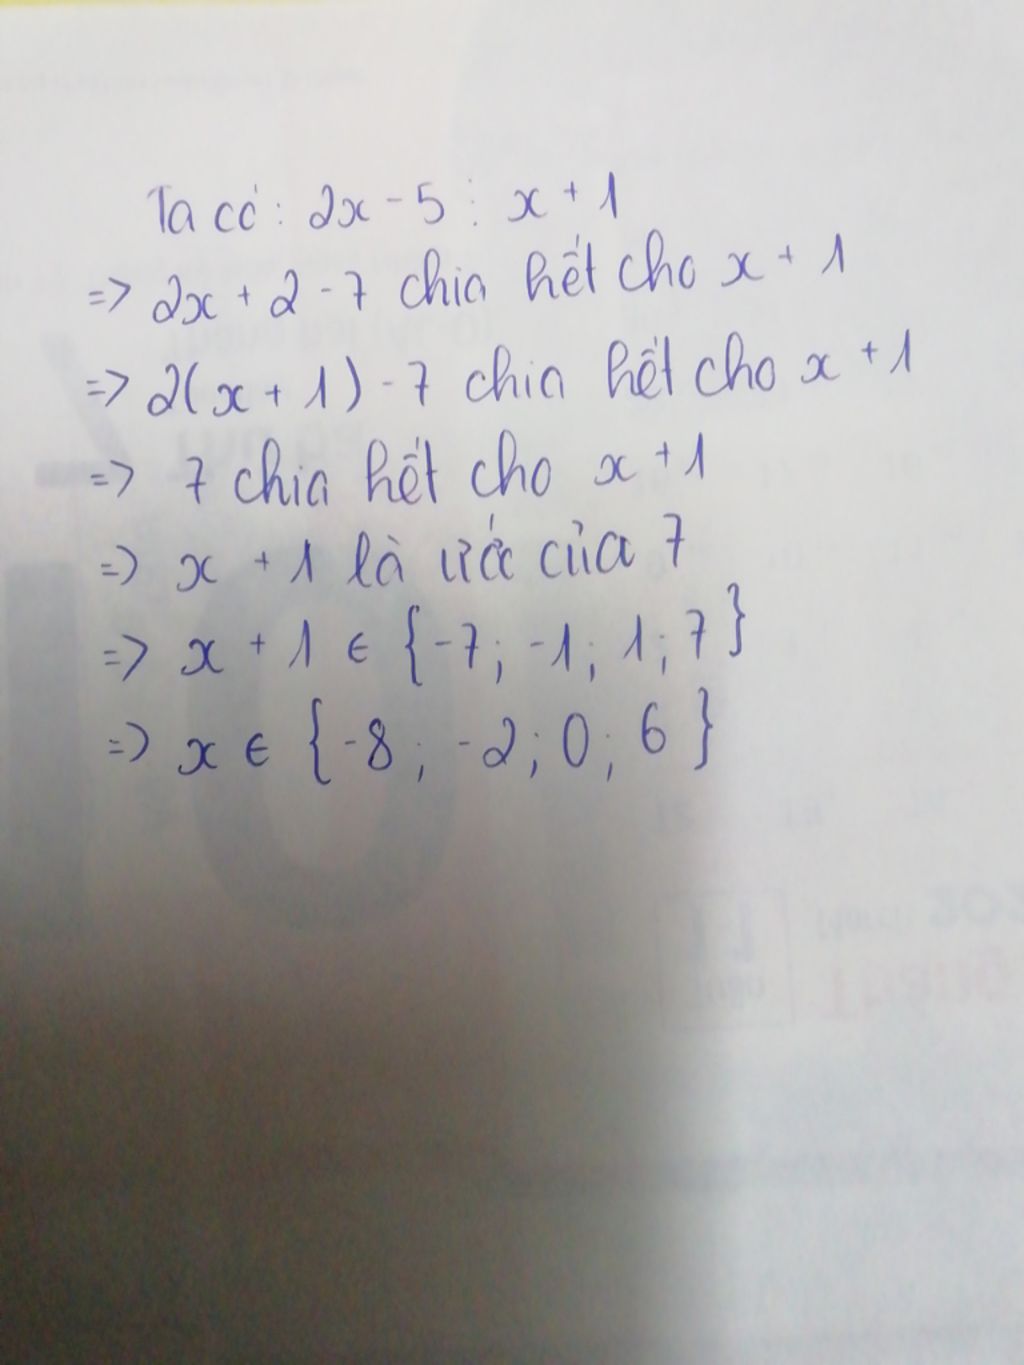 Ta có: 2x - 5 ⋮ x + 1
=> 2x + 2 - 7 chia hết cho x + 1
=> 2(x + 1) - 7 chia hết cho x + 1
=> 7 chia hết cho x + 1
=> x + 1 là ước của 7
=> x + 1 ∈ {-7; -1; 1; 7}
=> x ∈ {-8; -2; 0; 6}